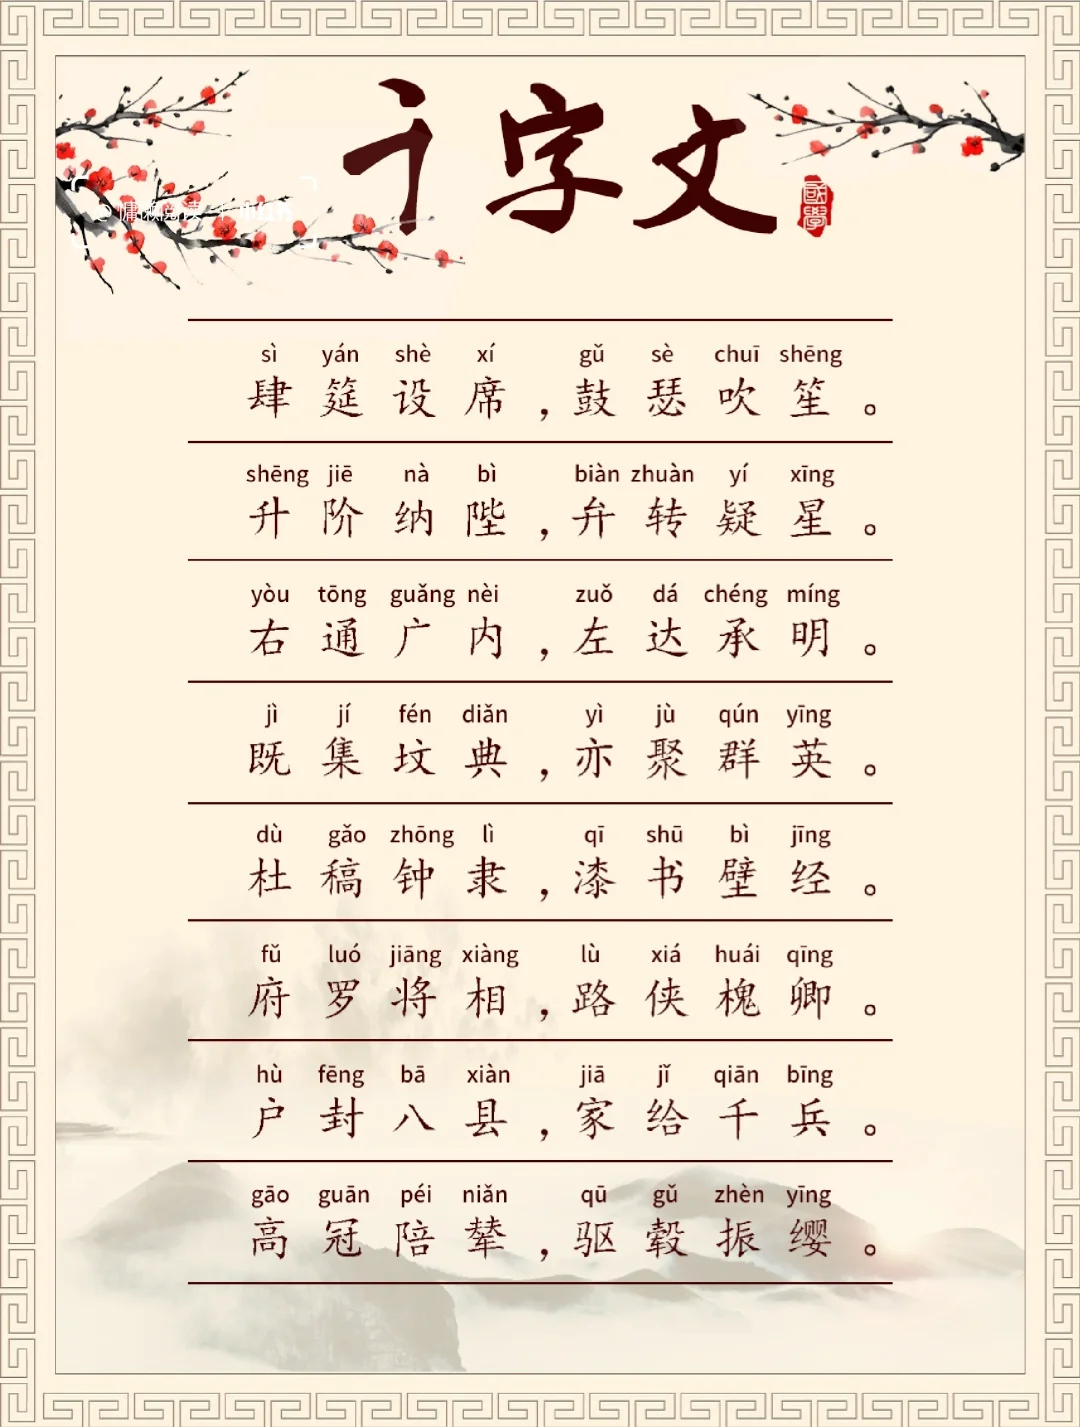 千字文
國學
sì yán shè xí gǔ sè chuī shēng
肆筵设席，鼓瑟吹笙。
shēng jiē nà bì biàn zhuàn yí xīng
升阶纳陛，弁转疑星。
yòu tōng guǎng nèi zuǒ dá chéng míng
右通广内，左达承明。
jì jí fén diǎn yì jù qún yīng
既集坟典，亦聚群英。
dù gǎo zhōng lì qī shū bì jīng
杜稿钟隶，漆书壁经。
fǔ luó jiāng xiàng lù xiá huái qīng
府罗将相，路侠槐卿。
hù fēng bā xiàn jiā jǐ qiān bīng
户封八县，家给千兵。
gāo guān péi niǎn qū gǔ zhèn yīng
高冠陪辇，驱毂振缨。